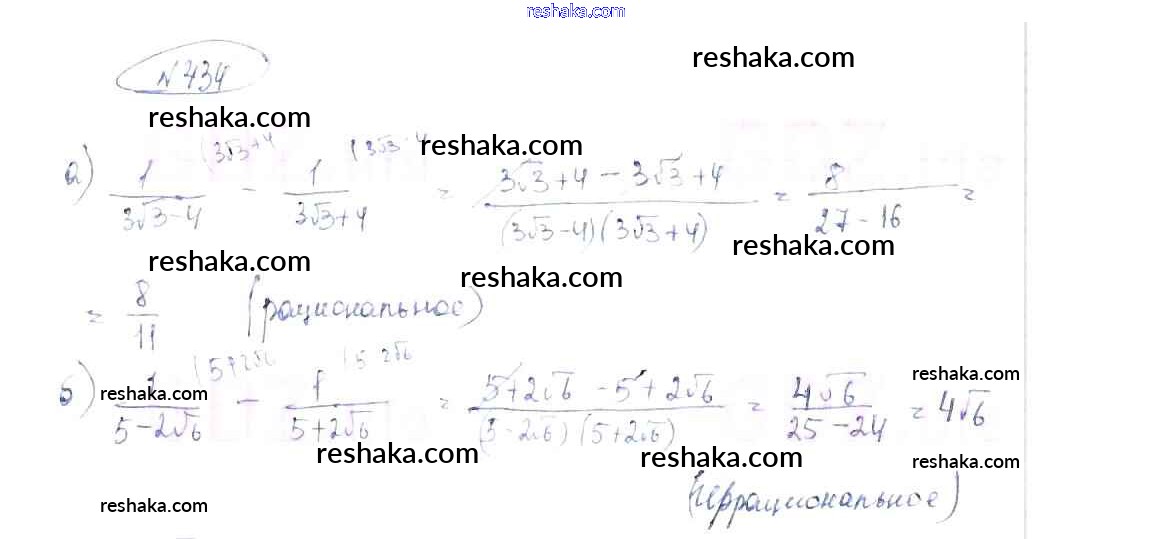 reshaka.com
№ 434
reshaka.com
reshaka.com
reshaka.com
а) 1/(3√3-4) (3√3+4 - 1/(3√3+4) (3√3-4 = (3√3+4-3√3+4)/((3√3-4)(3√3+4)) = 8/(27-16) =
reshaka.com
reshaka.com
reshaka.com
= 8/11 (рациональное)
б) 1/(5-2√6) (5+2√6 - 1/(5+2√6) (5 2√6 = (5+2√6-5+2√6)/((5-2√6)(5+2√6)) = 4√6/(25-24) = 4√6
reshaka.com
reshaka.com
reshaka.com
reshaka.com
reshaka.com
(иррациональное)
reshaka.com